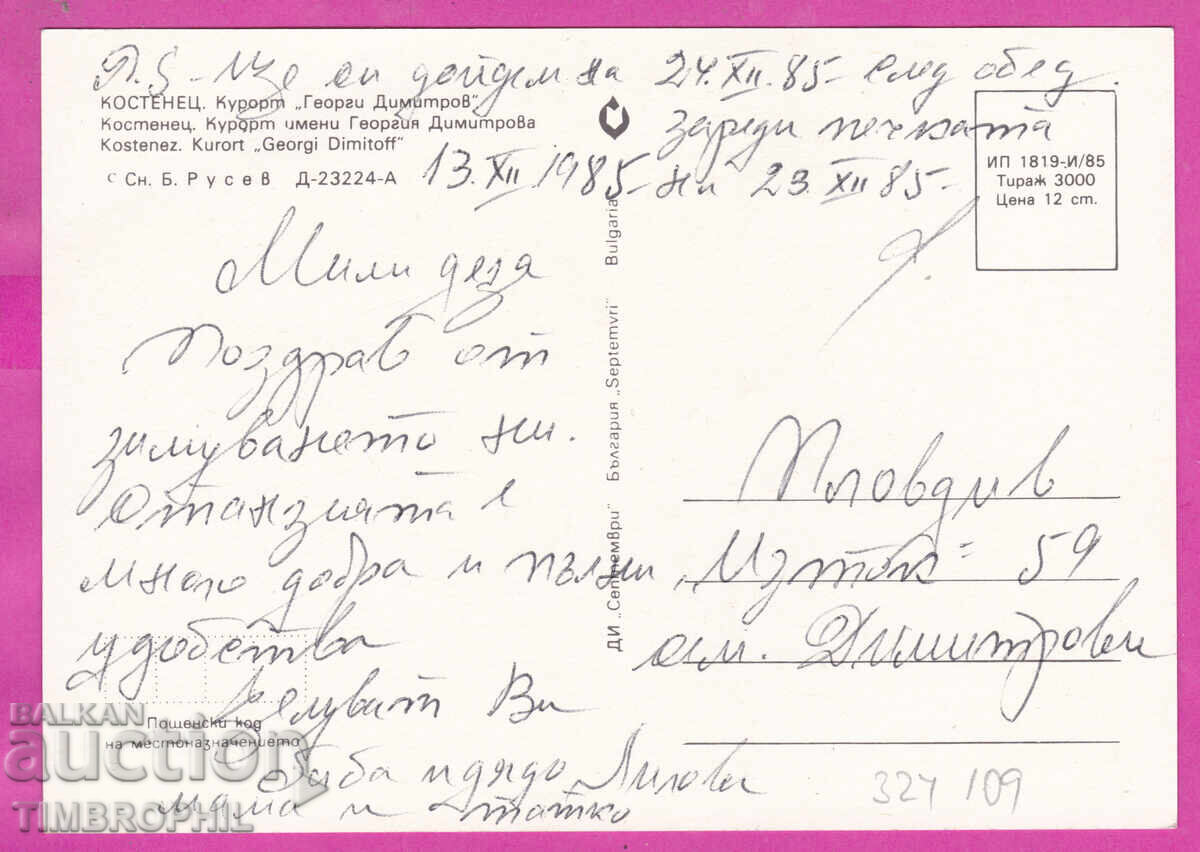 P.S - Ще си дойдем на 24.XII.85 - след обед.
зареди печката
13.XII 1985 - на 23.XII 85 -
КОСТЕНЕЦ. Курорт „Георги Димитров"
Костенец. Курорт имени Георгия Димитрова
Kostenez. Kurort „Georgi Dimitoff"
Сн. Б. Русев Д-23224-А
ИП 1819-И/85
Тираж 3000
Цена 12 ст.
Мили деца
Поздрав от
зимуването ни.
Станцията е
много добра и пълни
удобства
Целуват Ви
баба и дядо Лилови
мама и татко
Пощенски код
на местоназначението
ДИ „Септември" България „Septemvri" Bulgaria
Пловдив
„Изток" 59
сем. Димитрови
324 109
BALKAN
auction
TIMBROPHIL